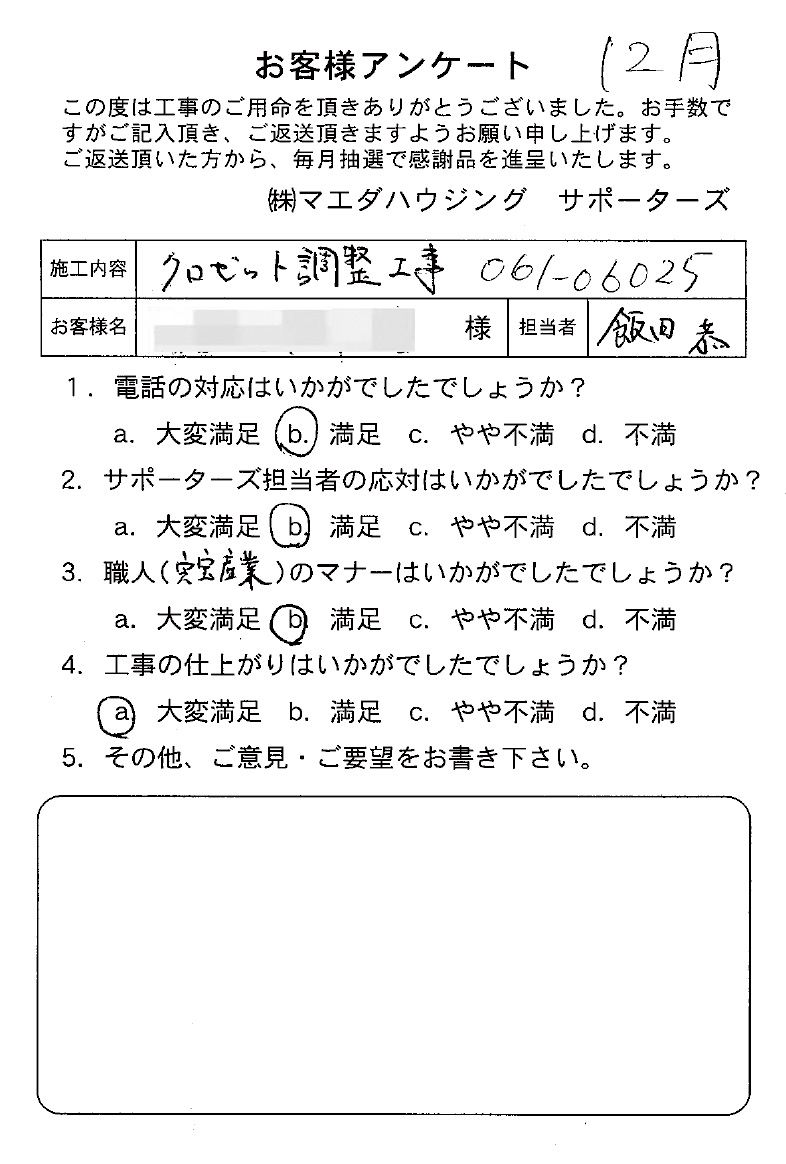 お客様アンケート 12月
この度は工事のご用命を頂きありがとうございました。お手数で
すがご記入頂き、ご返送頂きますようお願い申し上げます。
ご返送頂いた方から、毎月抽選で感謝品を進呈いたします。
㈱マエダハウジング サポーターズ
施工内容 クロゼット調整工事 061-06025
お客様名 様 担当者 飯田 恭
1. 電話の対応はいかがでしたでしょうか?
a. 大変満足 b. 満足 c. やや不満 d. 不満
2. サポーターズ担当者の応対はいかがでしたでしょうか?
a. 大変満足 b. 満足 c. やや不満 d. 不満
3. 職人(実宝産業)のマナーはいかがでしたでしょうか?
a. 大変満足 b. 満足 c. やや不満 d. 不満
4. 工事の仕上がりはいかがでしたでしょうか?
a 大変満足 b. 満足 c. やや不満 d. 不満
5. その他、ご意見・ご要望をお書き下さい。